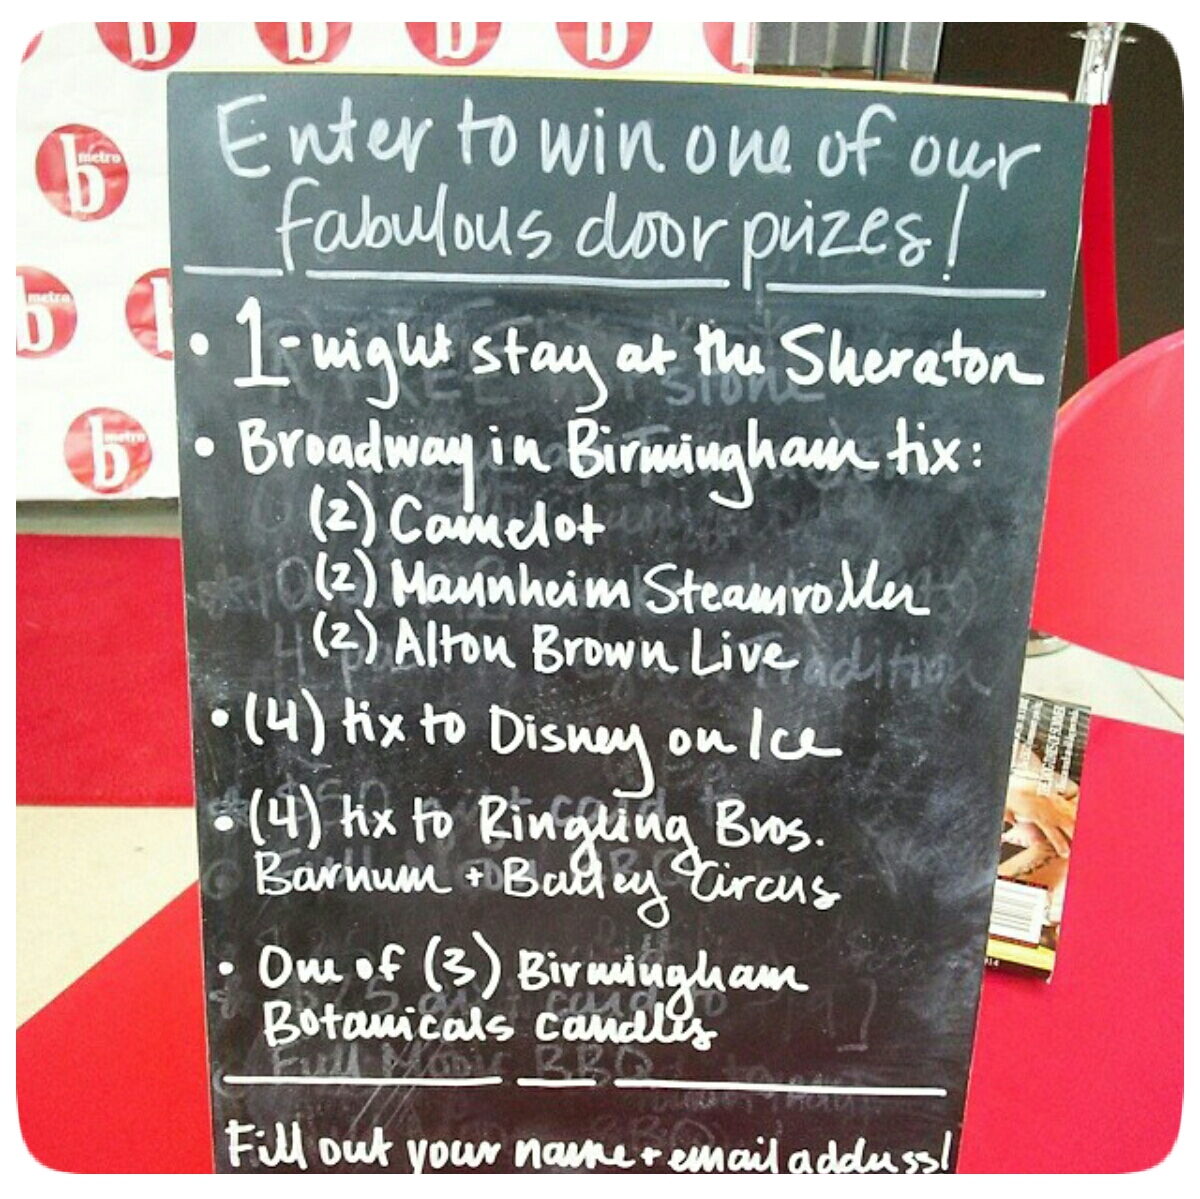 Enter to win one of our
fabulous door prizes!
• 1-night stay at the Sheraton
• Broadway in Birmingham tix:
(2) Camelot
(2) Mannheim Steamroller
(2) Alton Brown Live
• (4) tix to Disney on Ice
• (4) tix to Ringling Bros.
Barnum + Bailey Circus
• One of (3) Birmingham
Botanicals candles
Fill out your name + email address!
b metro
b metro
b metro